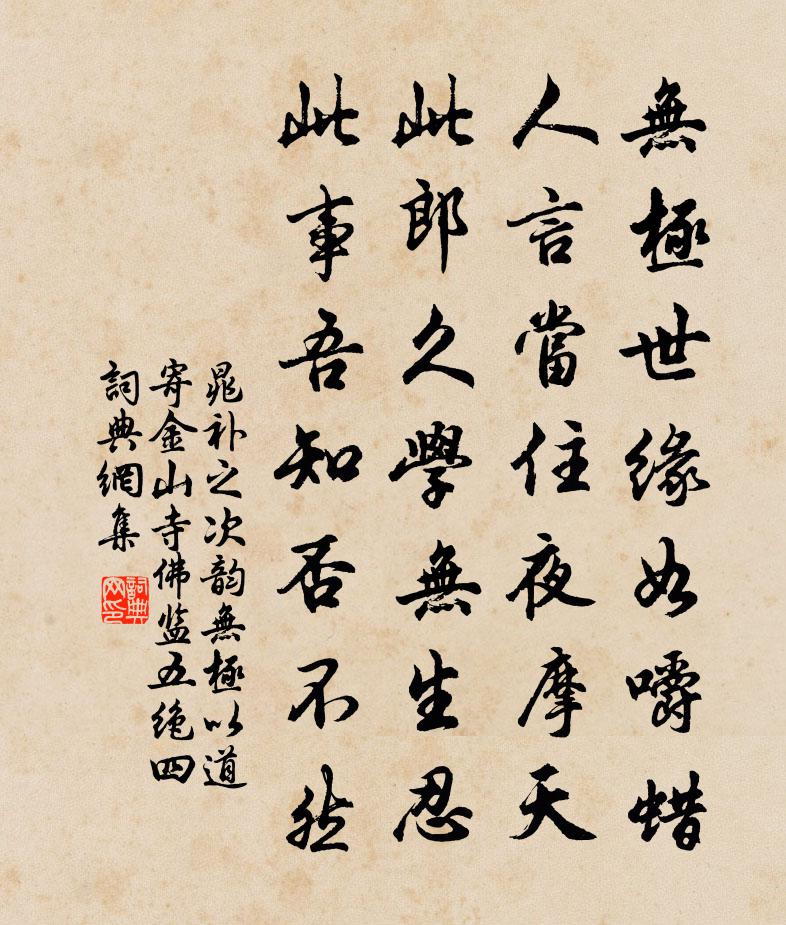 無極世緣如嚼蜡
人言當住夜摩天
此郎久學無生忍
此事吾知否不然
晁补之次韵無極以道
寄金山寺佛监五绝四
詞典網集
詞典网印